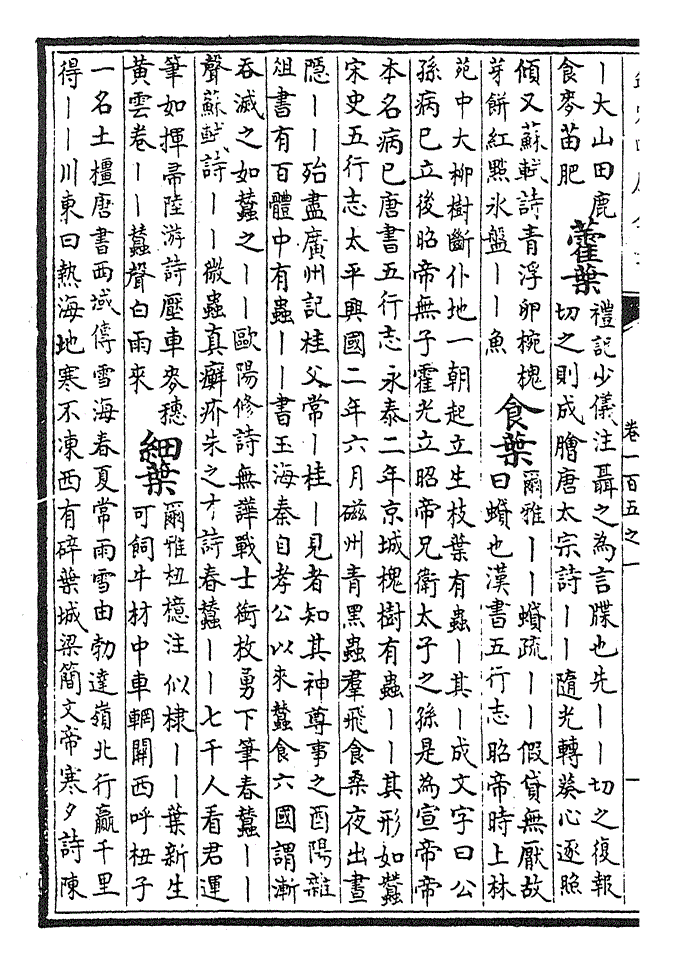 ｜大山田鹿
食麥苗肥
藿葉
禮記少儀注聶之為言牒也先｜｜切之復報
切之則成膾唐太宗詩｜｜隨光轉葵心逐照
傾又蘇軾詩青浮卵椀槐
芽餅紅點氷盤｜｜魚
食葉
爾雅｜｜蟘疏｜｜假貸無厭故
曰蟘也漢書五行志昭帝時上林
苑中大柳樹斷仆地一朝起立生枝葉有蟲｜其｜成文字曰公
孫病已立後昭帝無子霍光立昭帝兄衛太子之孫是為宣帝帝
本名病已唐書五行志永泰二年京城槐樹有蟲｜｜其形如蠶
宋史五行志太平興國二年六月磁州青黑蟲羣飛食桑夜出晝
隠｜｜殆盡廣州記桂父常｜桂｜見者知其神尊事之酉陽雜
俎書有百體中有蟲｜｜書玉海秦自孝公以來蠶食六國謂漸
吞滅之如蠶之｜｜歐陽修詩無譁戰士銜枚勇下筆春蠶｜｜
聲蘇軾詩｜｜微蟲真癬疥朱之才詩春蠶｜｜七千人看君運
筆如揮帚陸游詩壓車麥穗
黄雲卷｜｜蠶聲白雨來
細葉
爾雅杻檍注似棣｜｜葉新生
可飼牛材中車輞關西呼杻子
一名土橿唐書西域傳雪海春夏常雨雪由勃達嶺北行贏千里
得｜｜川東曰熱海地寒不凍西有碎葉城梁簡文帝寒夕詩陳
卷一百五之一
一